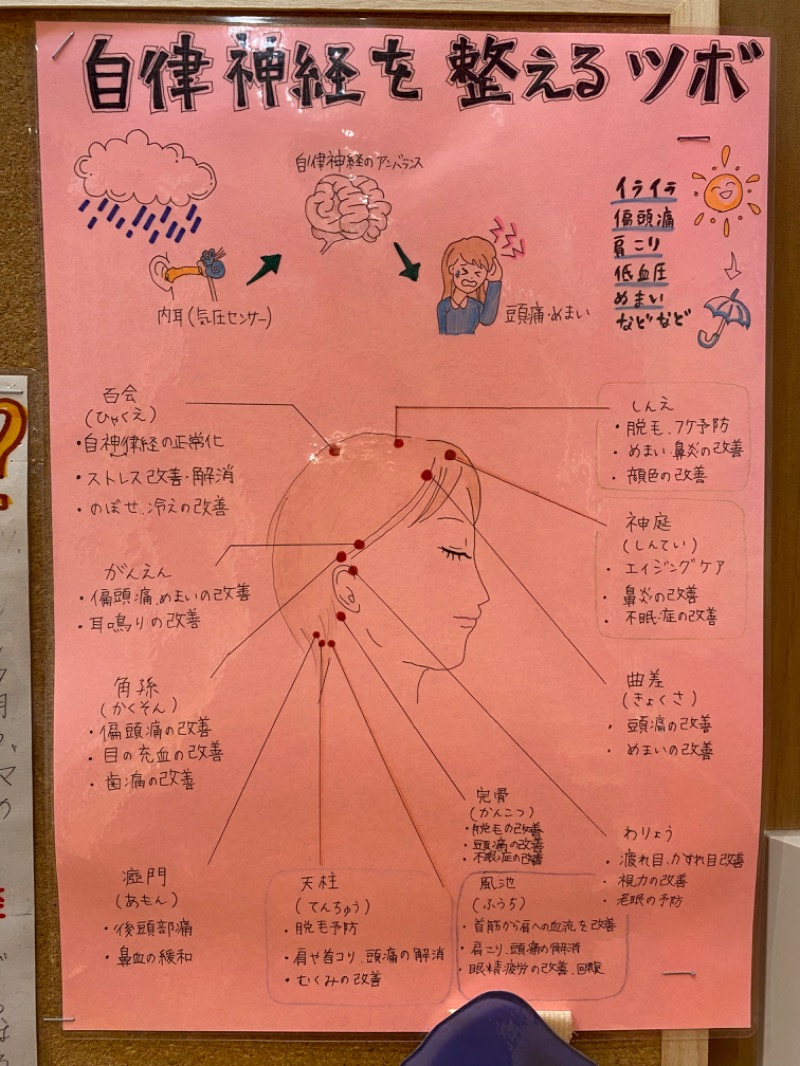 自律神経を整えるツボ
自律神経のアンバランス
内耳(気圧センサー)
頭痛・めまい
イライラ
偏頭痛
肩こり
低血圧
めまい
などなど
百会
(ひゃくえ)
・自神律経の正常化
・ストレス改善・解消
・のぼせ、冷えの改善
しんえ
・脱毛、フケ予防
・めまい、鼻炎の改善
・顔色の改善
神庭
(しんてい)
・エイジングケア
・鼻炎の改善
・不眠症の改善
がんえん
・偏頭痛、めまいの改善
・耳鳴りの改善
角孫
(かくそん)
・偏頭痛の改善
・目の充血の改善
・歯痛の改善
曲差
(きょくさ)
・頭痛の改善
・めまいの改善
完骨
(かんこつ)
・脱毛の改善
・頭痛の改善
・不眠症の改善
わりょう
・疲れ目、かすれ目改善
・視力の改善
・老眼の予防
瘂門
(あもん)
・後頭部痛
・鼻血の緩和
天柱
(てんちゅう)
・脱毛予防
・肩や首コリ、頭痛の解消
・むくみの改善
風池
(ふうち)
・首筋から肩への血流を改善
・肩こり、頭痛の解消
・眼精疲労の改善、回復
?